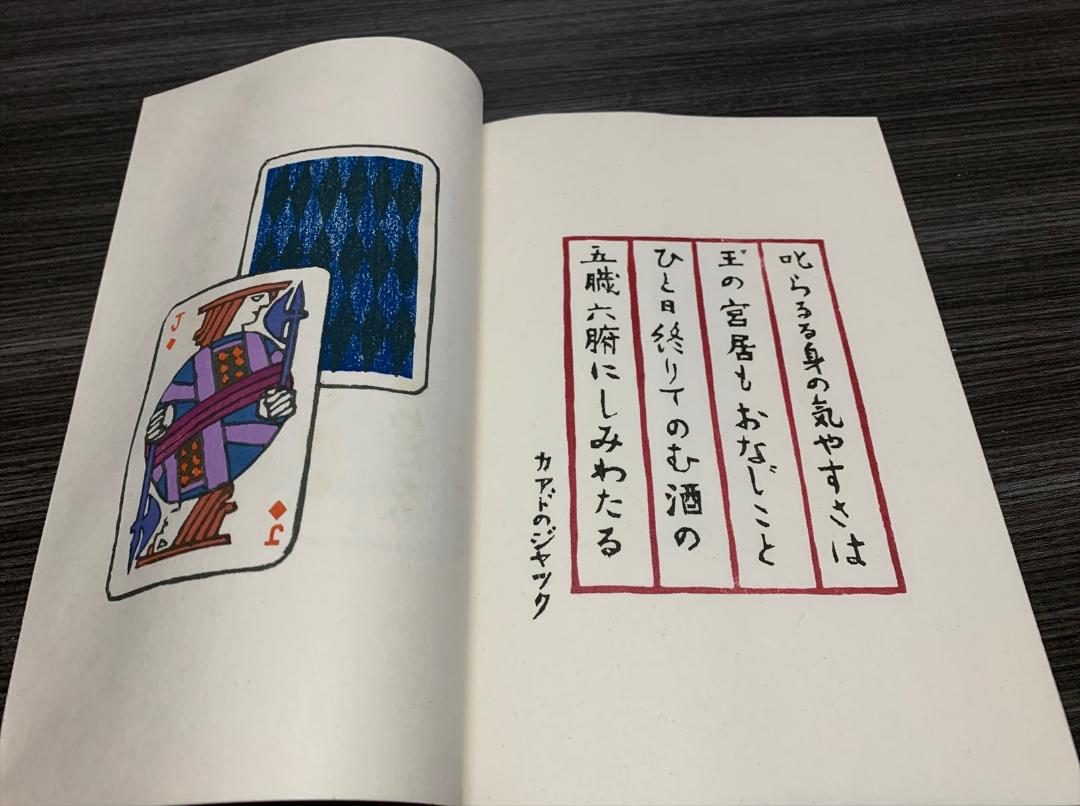 叱らるる身の気やすさは
玉の宮居もおなじこと
ひと日終りてのむ酒の
五臓六腑にしみわたる
カアドのジャック
J
J